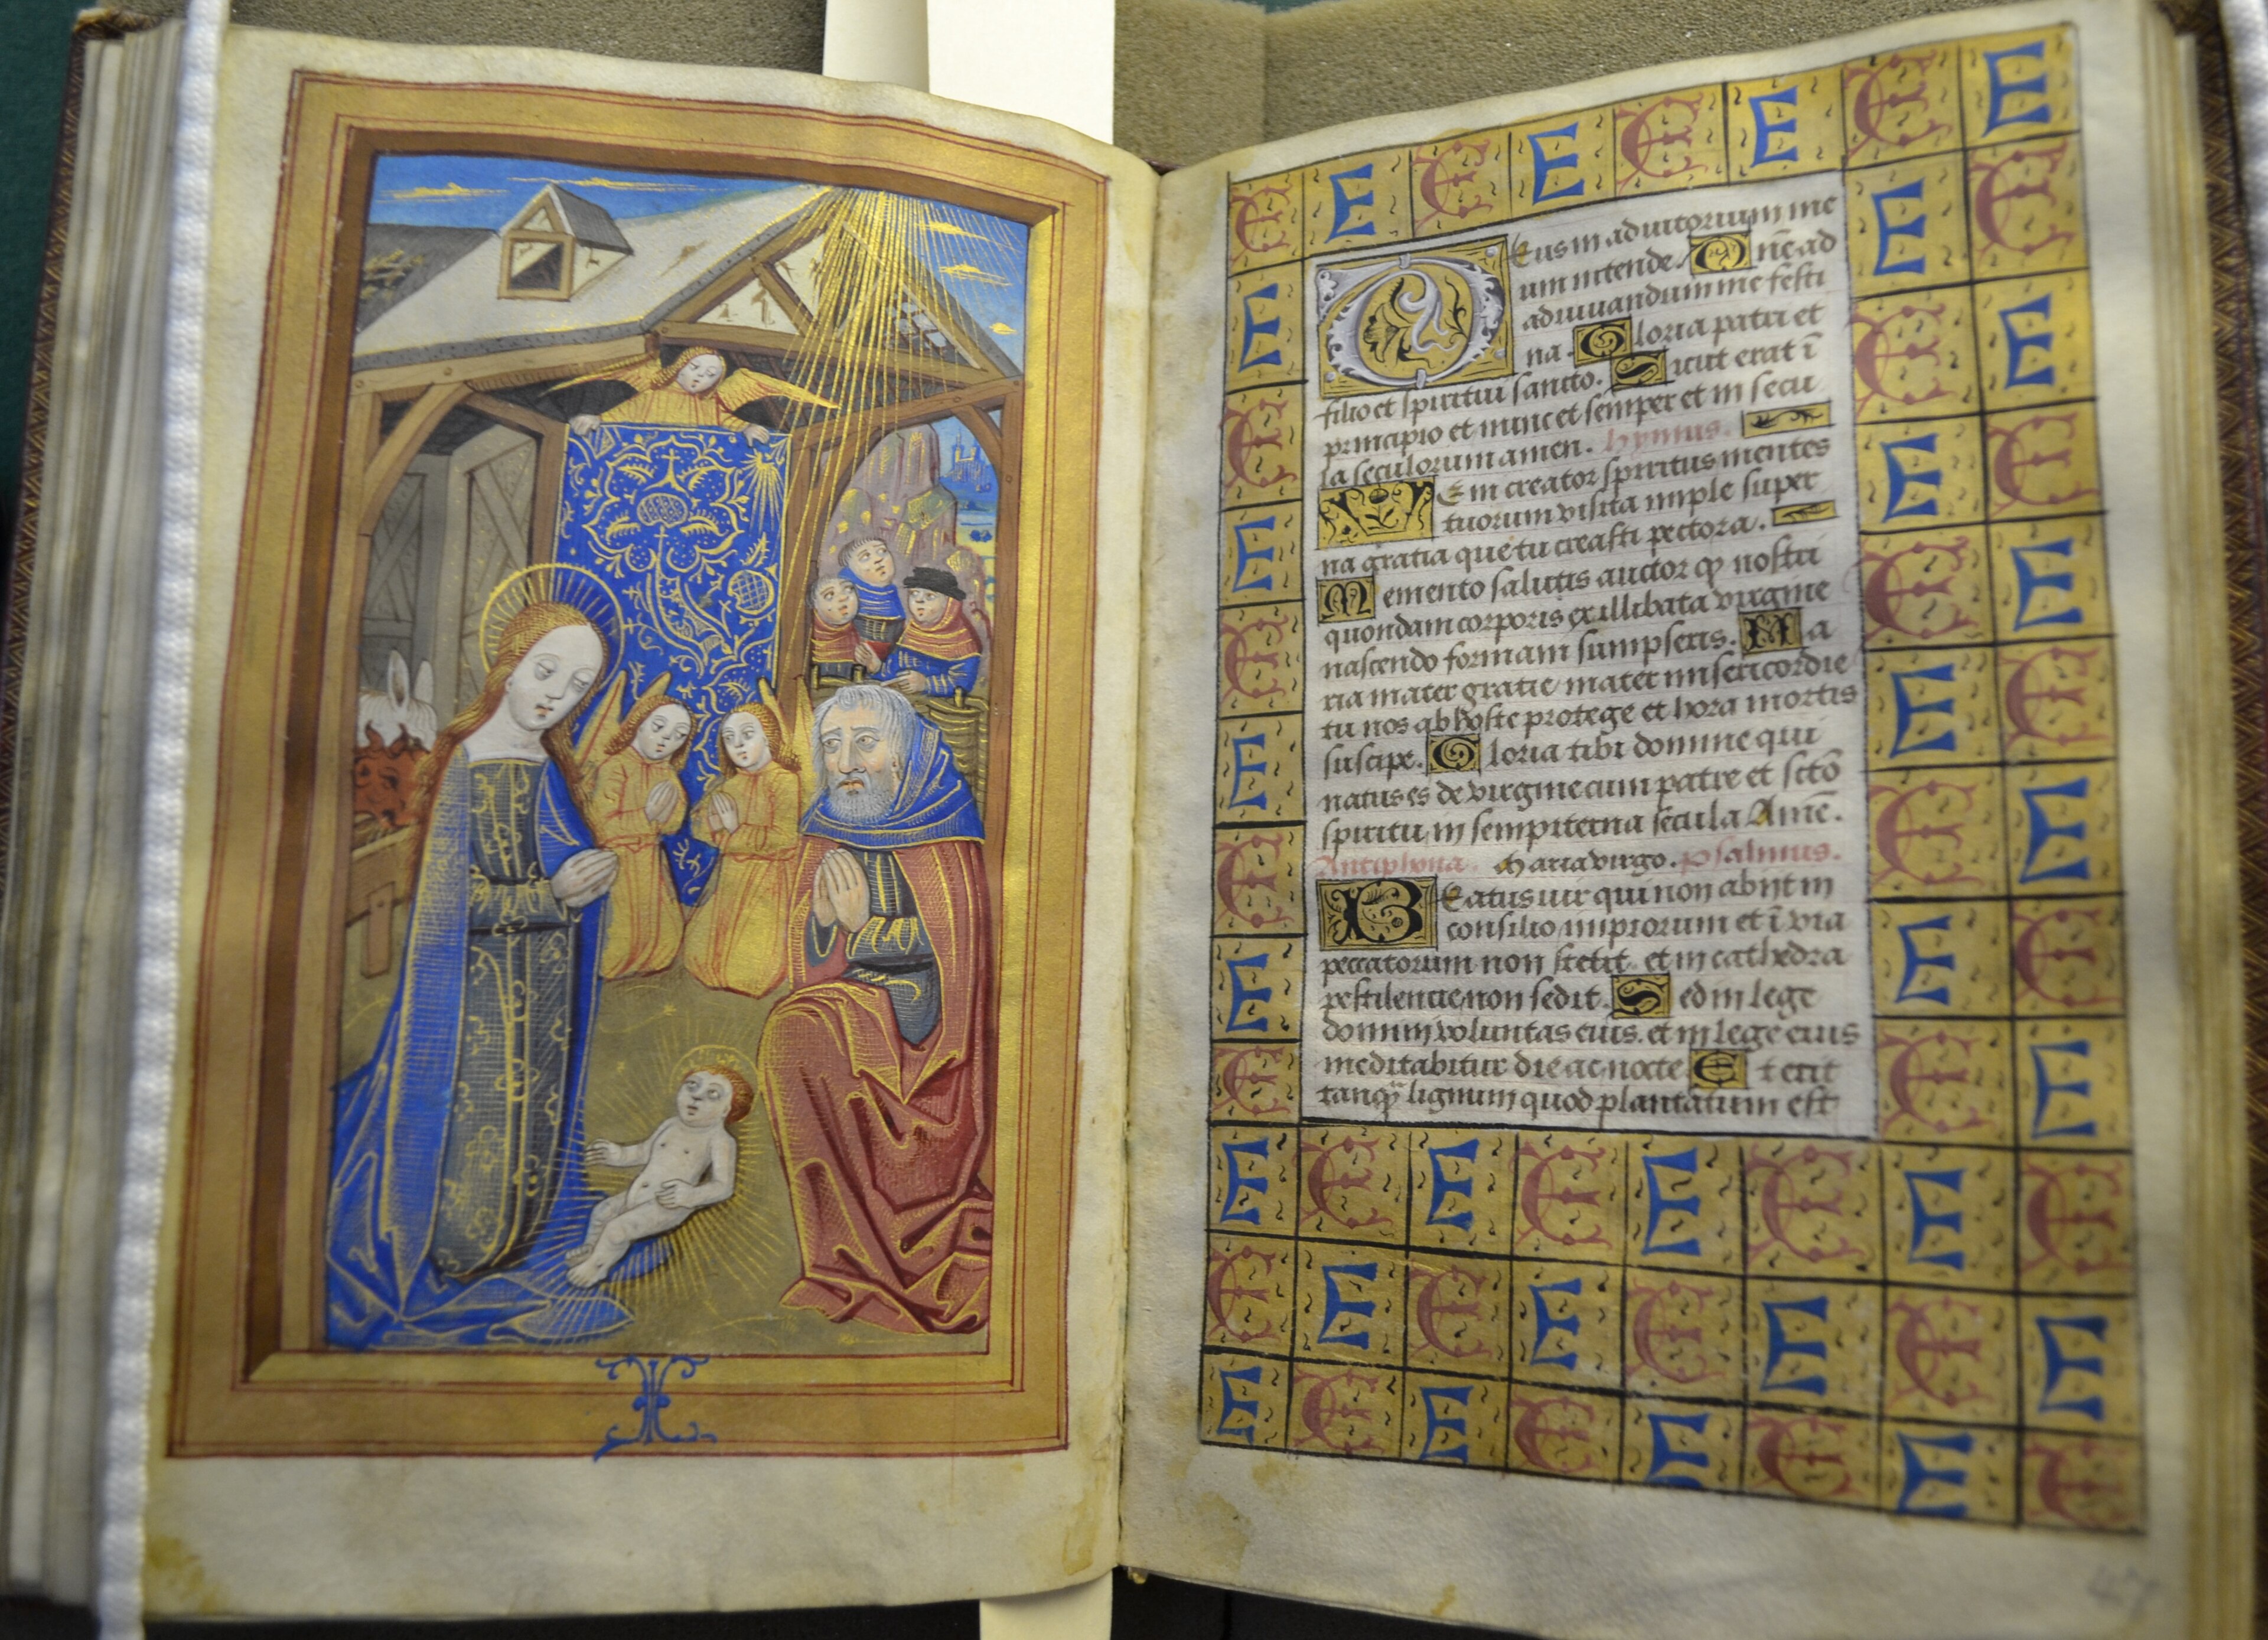 I
E E E E E E E E
Deus in adiutorium me
um intende. Dn̄e ad
adiuuandum me festi
na. Gloria patri et
filio et spiritui sancto. Sicut erat ī
principio et nunc et semper et in secu
la seculorum amen. hymnus.
Veni creator spiritus mentes
tuorum visita imple super
na gratia que tu creasti pectora.
Memento salutis auctor ꝙ nostri
quondam corporis ex illibata virgine
nascendo formam sumpseris. Ma
ria mater gratie mater misericordie
tu nos ab hoste protege et hora mortis
suscipe. Gloria tibi domine qui
natus es de virgine cum patre et sctō
spiritu in sempiterna secula Amē.
Antiphona. Maria virgo. Psalmus.
Beatus uir qui non abijt in
consilio impiorum et ī via
peccatorum non stetit. et in cathedra
pestilencie non sedit. Sed in lege
domini voluntas eius. et in lege eius
meditabitur die ac nocte Et erit
tanqꝫ lignum quod plantatum est
E E E E E E E E
E E E E E E E E
E E E E E E E E
47